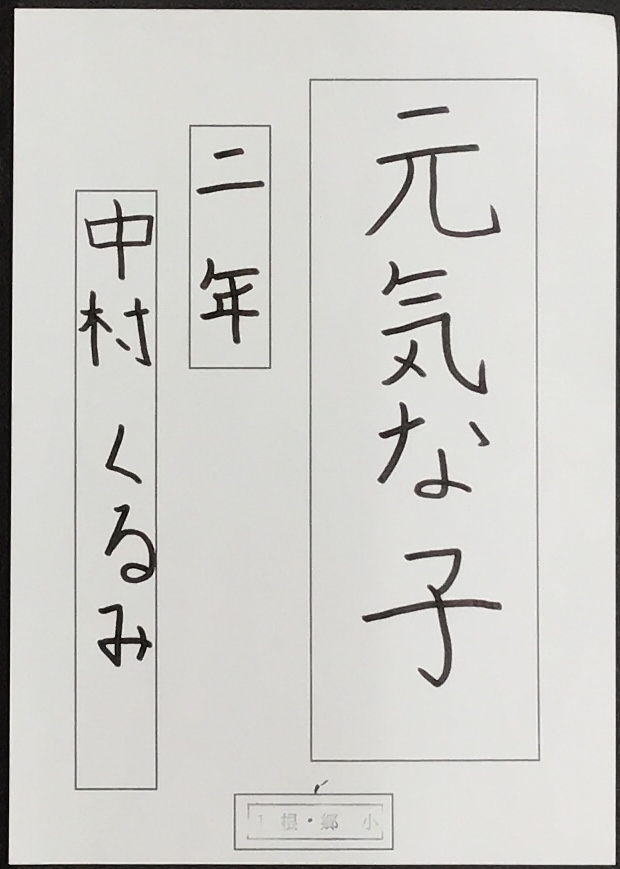 元気な子
二年
中村 くるみ
1 根・郷 小